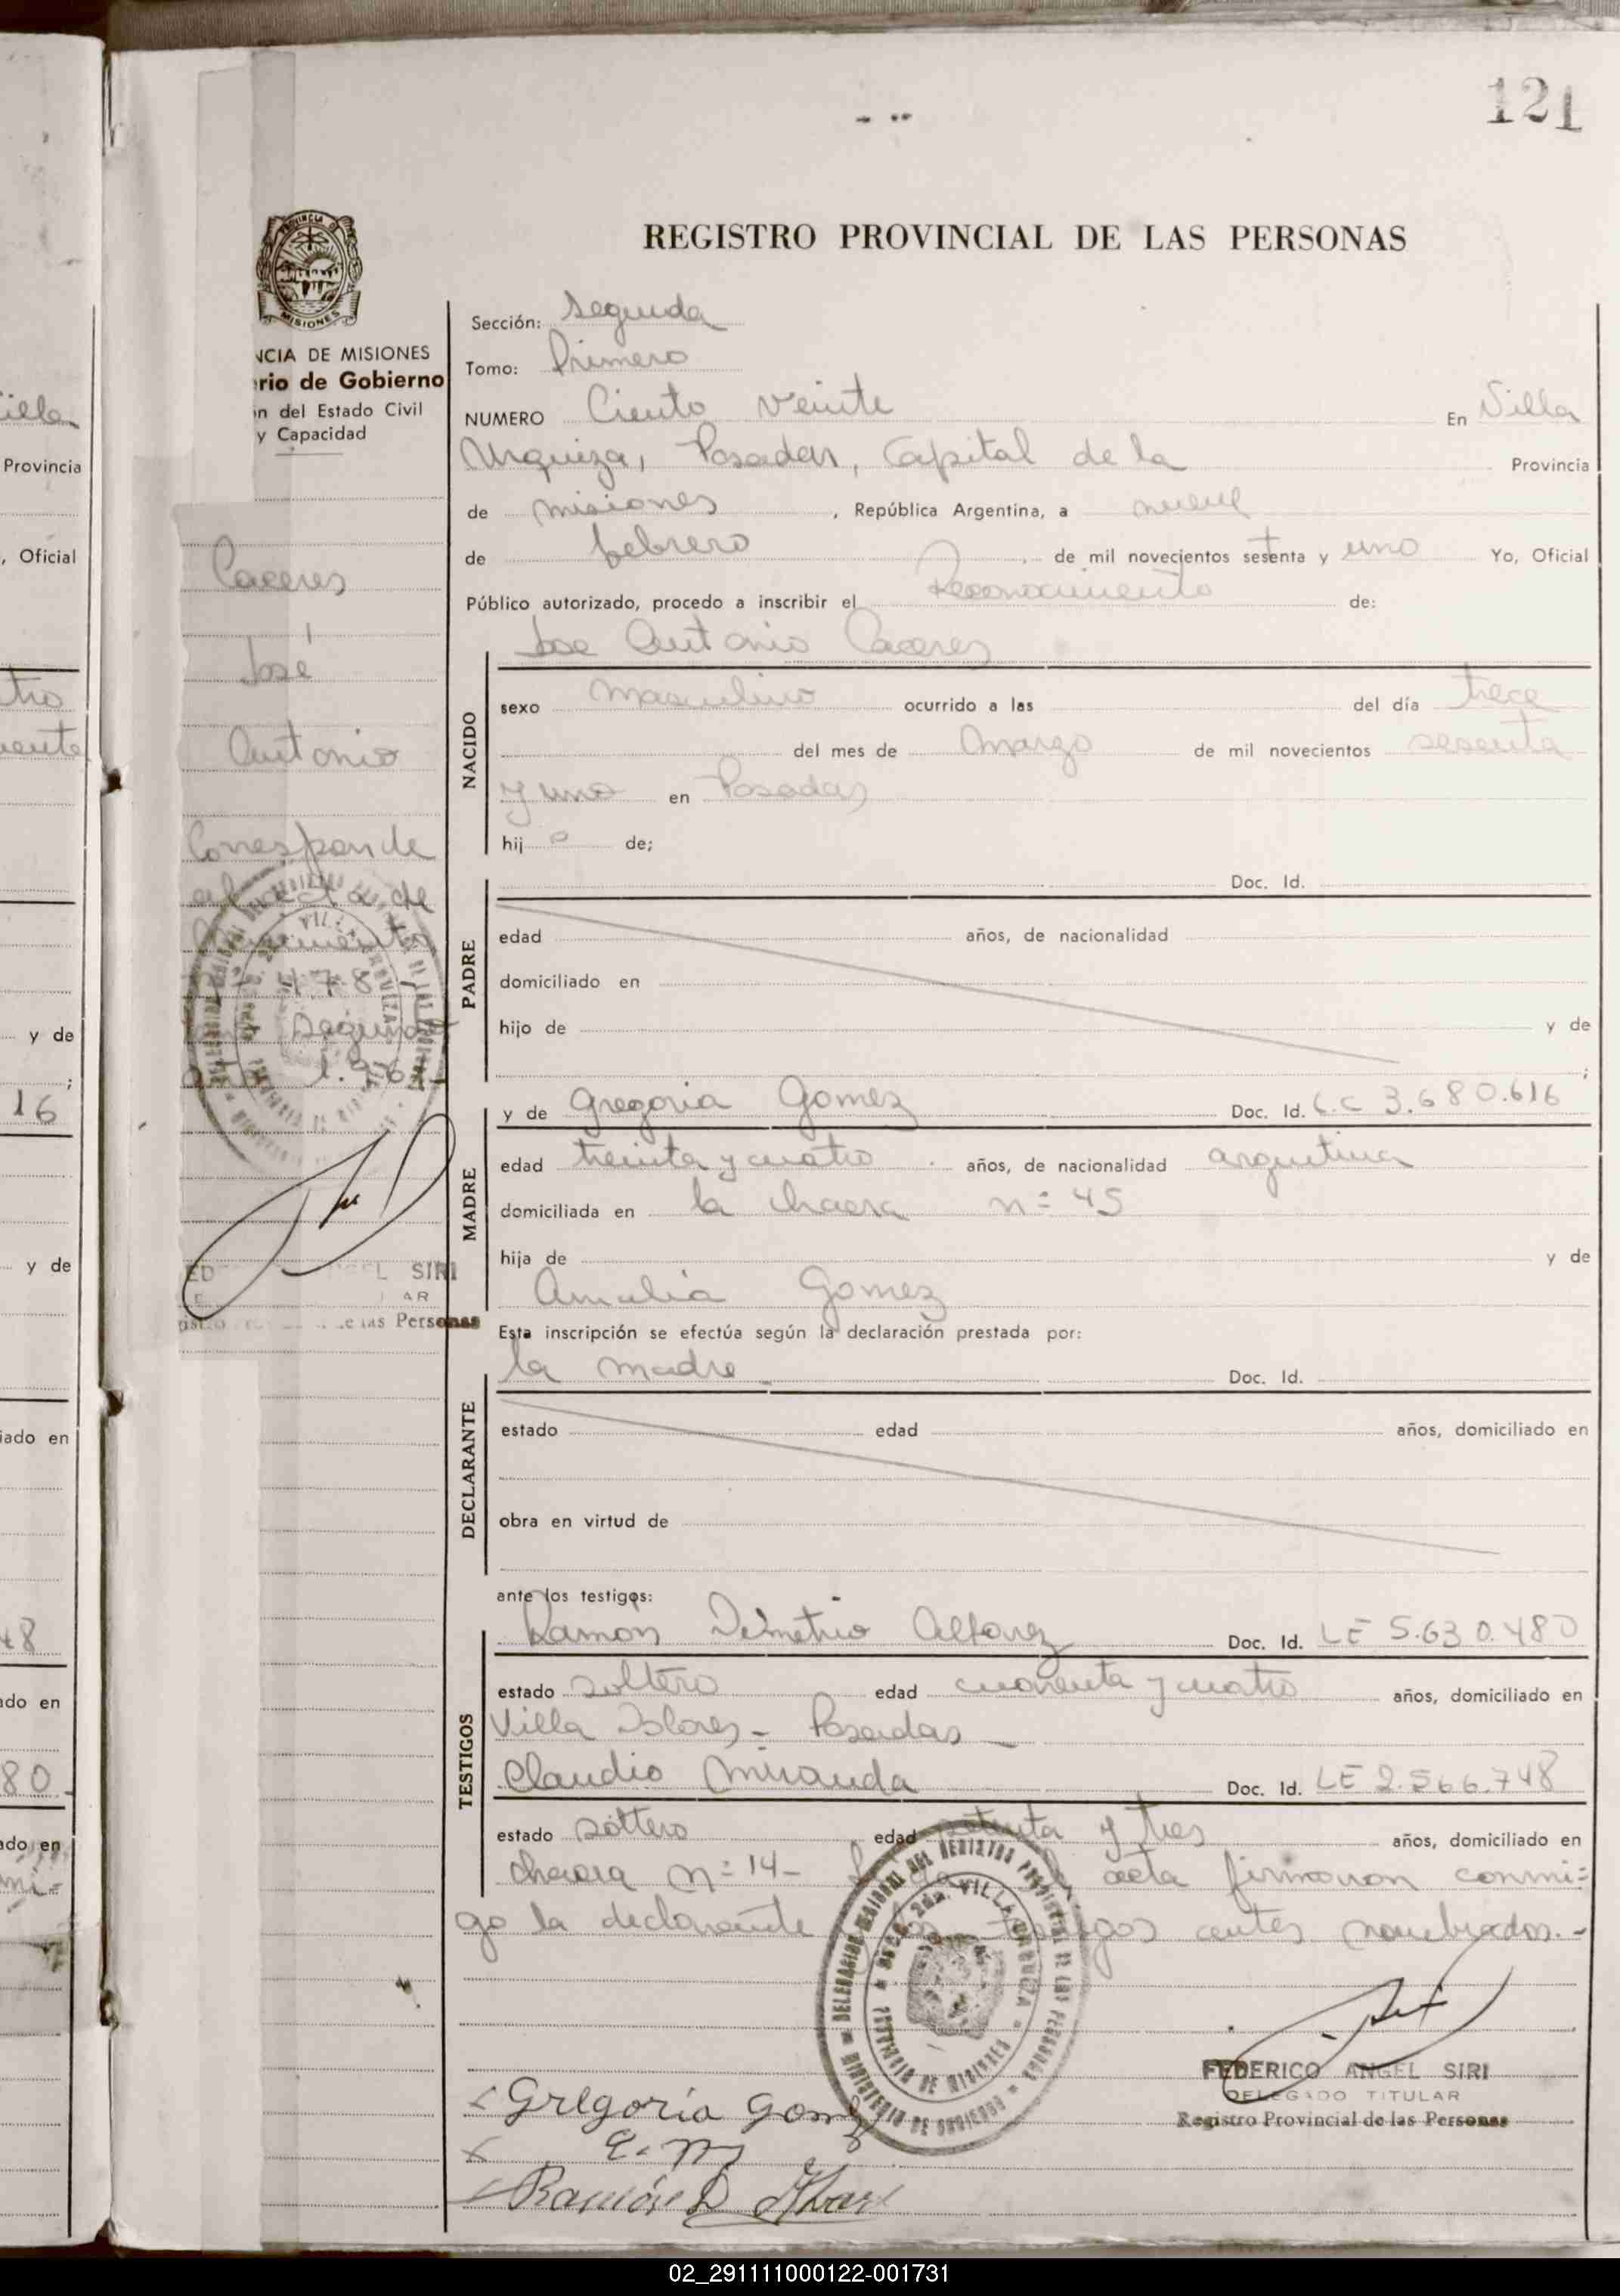 121
REGISTRO PROVINCIAL DE LAS PERSONAS
MISIONES
NCIA DE MISIONES
rio de Gobierno
n del Estado Civil
y Capacidad
Caceres
José
Antonio
Corresponde
al acta de
478
Segunda
SIRI
AR
e las Personas
Sección: Segunda
Tomo: Primero
NUMERO Ciento veinte En Villa
Urquiza, Posadas, Capital de la Provincia
de misiones, República Argentina, a nueve
de febrero, de mil novecientos setenta y uno Yo, Oficial
Público autorizado, procedo a inscribir el Reconocimiento de:
Jose Antonio Caceres
NACIDO
sexo masculino ocurrido a las del día trece
del mes de Marzo de mil novecientos sesenta
y uno en Posadas
hij o de;
Doc. Id.
PADRE
edad años, de nacionalidad
domiciliado en
hijo de y de
;
MADRE
y de Gregoria Gomez Doc. Id. L.C 3.680.616
edad treinta y cuatro años, de nacionalidad argentina
domiciliada en la chacra n= 45
hija de y de
Amalia Gomez
Esta inscripción se efectúa según la declaración prestada por:
la madre Doc. Id.
DECLARANTE
estado edad años, domiciliado en
obra en virtud de
ante los testigos:
Ramón Demetrio Doc. Id. LE 5.630.480
TESTIGOS
estado soltero edad cuarenta y cuatro años, domiciliado en
Villa Flores - Posadas -
Claudio Miranda Doc. Id. LE 2.566.748
estado soltero edad setenta y tres años, domiciliado en
chacra n= 14 - acta firmaron conmi=
go la declarante los testigos antes nombrados.-
FEDERICO ANGEL SIRI
DELEGADO TITULAR
Registro Provincial de las Personas
Gregoria Gomez
Ramón D
illa
Provincia
, Oficial
y de
;
16
y de
iado en
48
ado en
80.
ado en
mi=
02_291111000122-001731